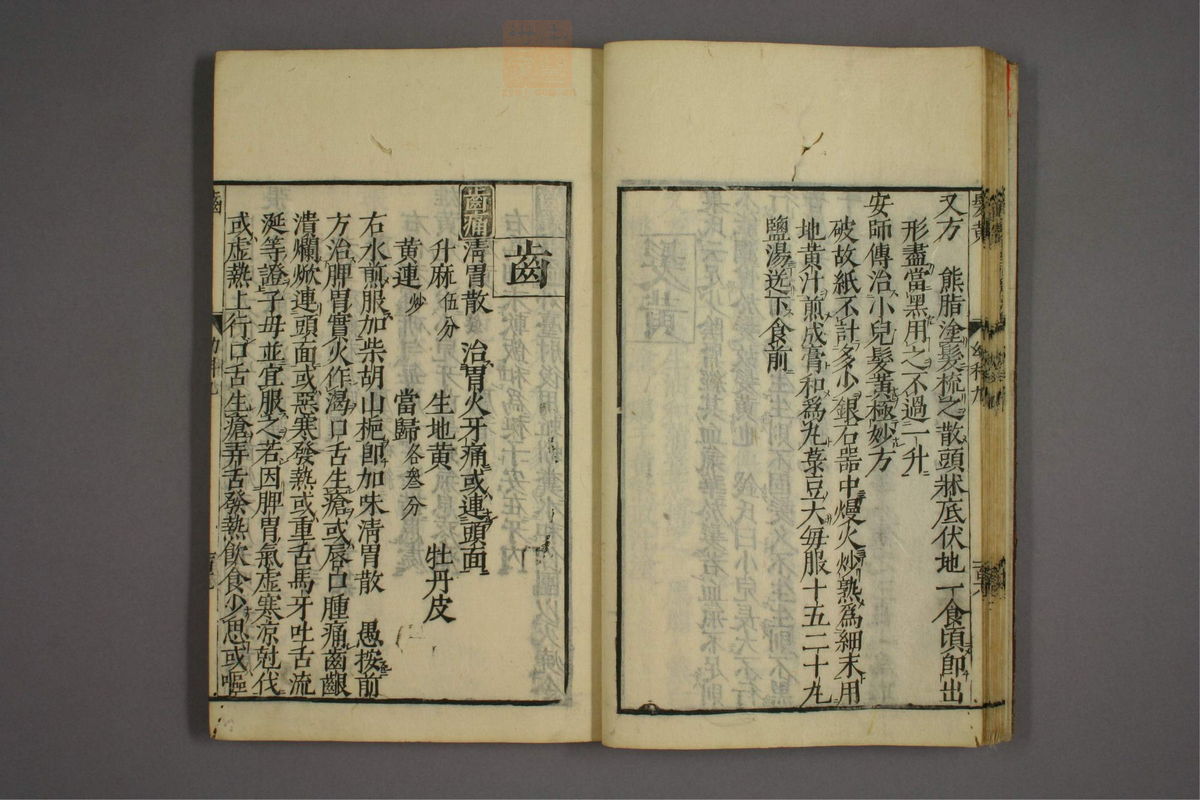 又方 熊脂塗髮梳之散頭牀底伏地一食頃即出
形盡當黑用之不過二升
安師傳治小兒髮黃極妙方
破故紙不計多少銀石器中熳火炒熟爲細末用
地黃汁煎成膏和爲丸菉豆大每服十五二十丸
鹽湯送下食前
齒
齒痛
淸胃散 治胃火牙痛或連頭面
升麻伍分 生地黃 牡丹皮
黃連炒 當歸各叄分
右水煎服加柴胡山梔即加味淸胃散 愚按前
方治脾胃實火作渴口舌生瘡或唇口腫痛齒齦
潰爛焮連頭面或惡寒發熱或重舌馬牙吐舌流
涎等證子母並宜服之若因脾胃氣虛寒凉尅伐
或虛熱上行口舌生瘡弄舌發熱飮食少思或嘔